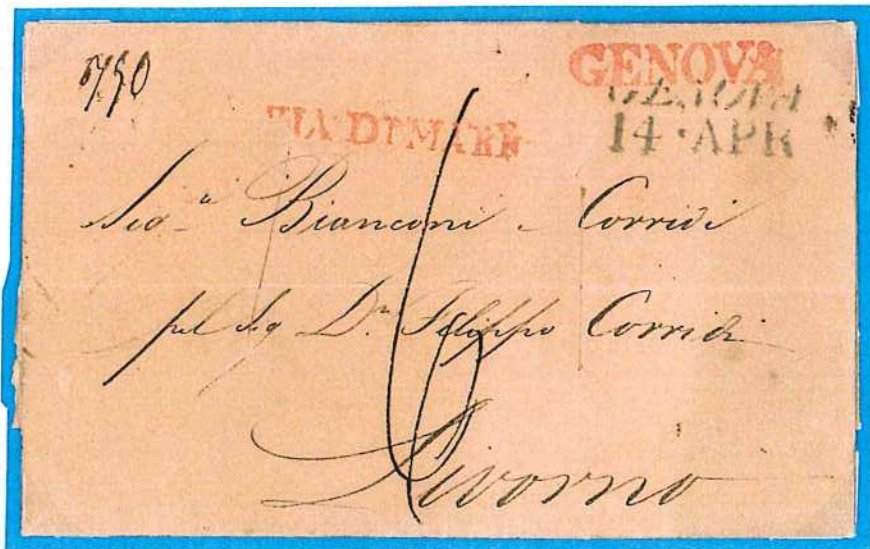 750
GENOVA
VIA DI MARE
GENOVA
14 · APR
Sig.ri Bianconi e Corridi
pel Sig D.r Filippo Corridi
6
Livorno